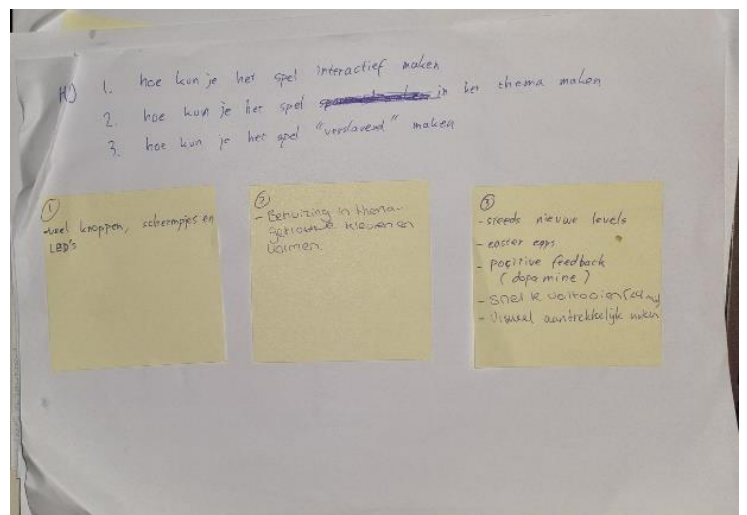 H) 1. hoe kun je het spel interactief maken
2. hoe kun je het spel in het thema maken
3. hoe kun je het spel "verslavend" maken
1
-veel knoppen, schermpjes en
LED's
2
- Behuizing in thema-
getrouwe kleuren en
vormen.
3
- steeds nieuwe levels
- easter eggs
- positive feedback
(dopamine)
- Snel te voltooien
- Visueel aantrekkelijk maken